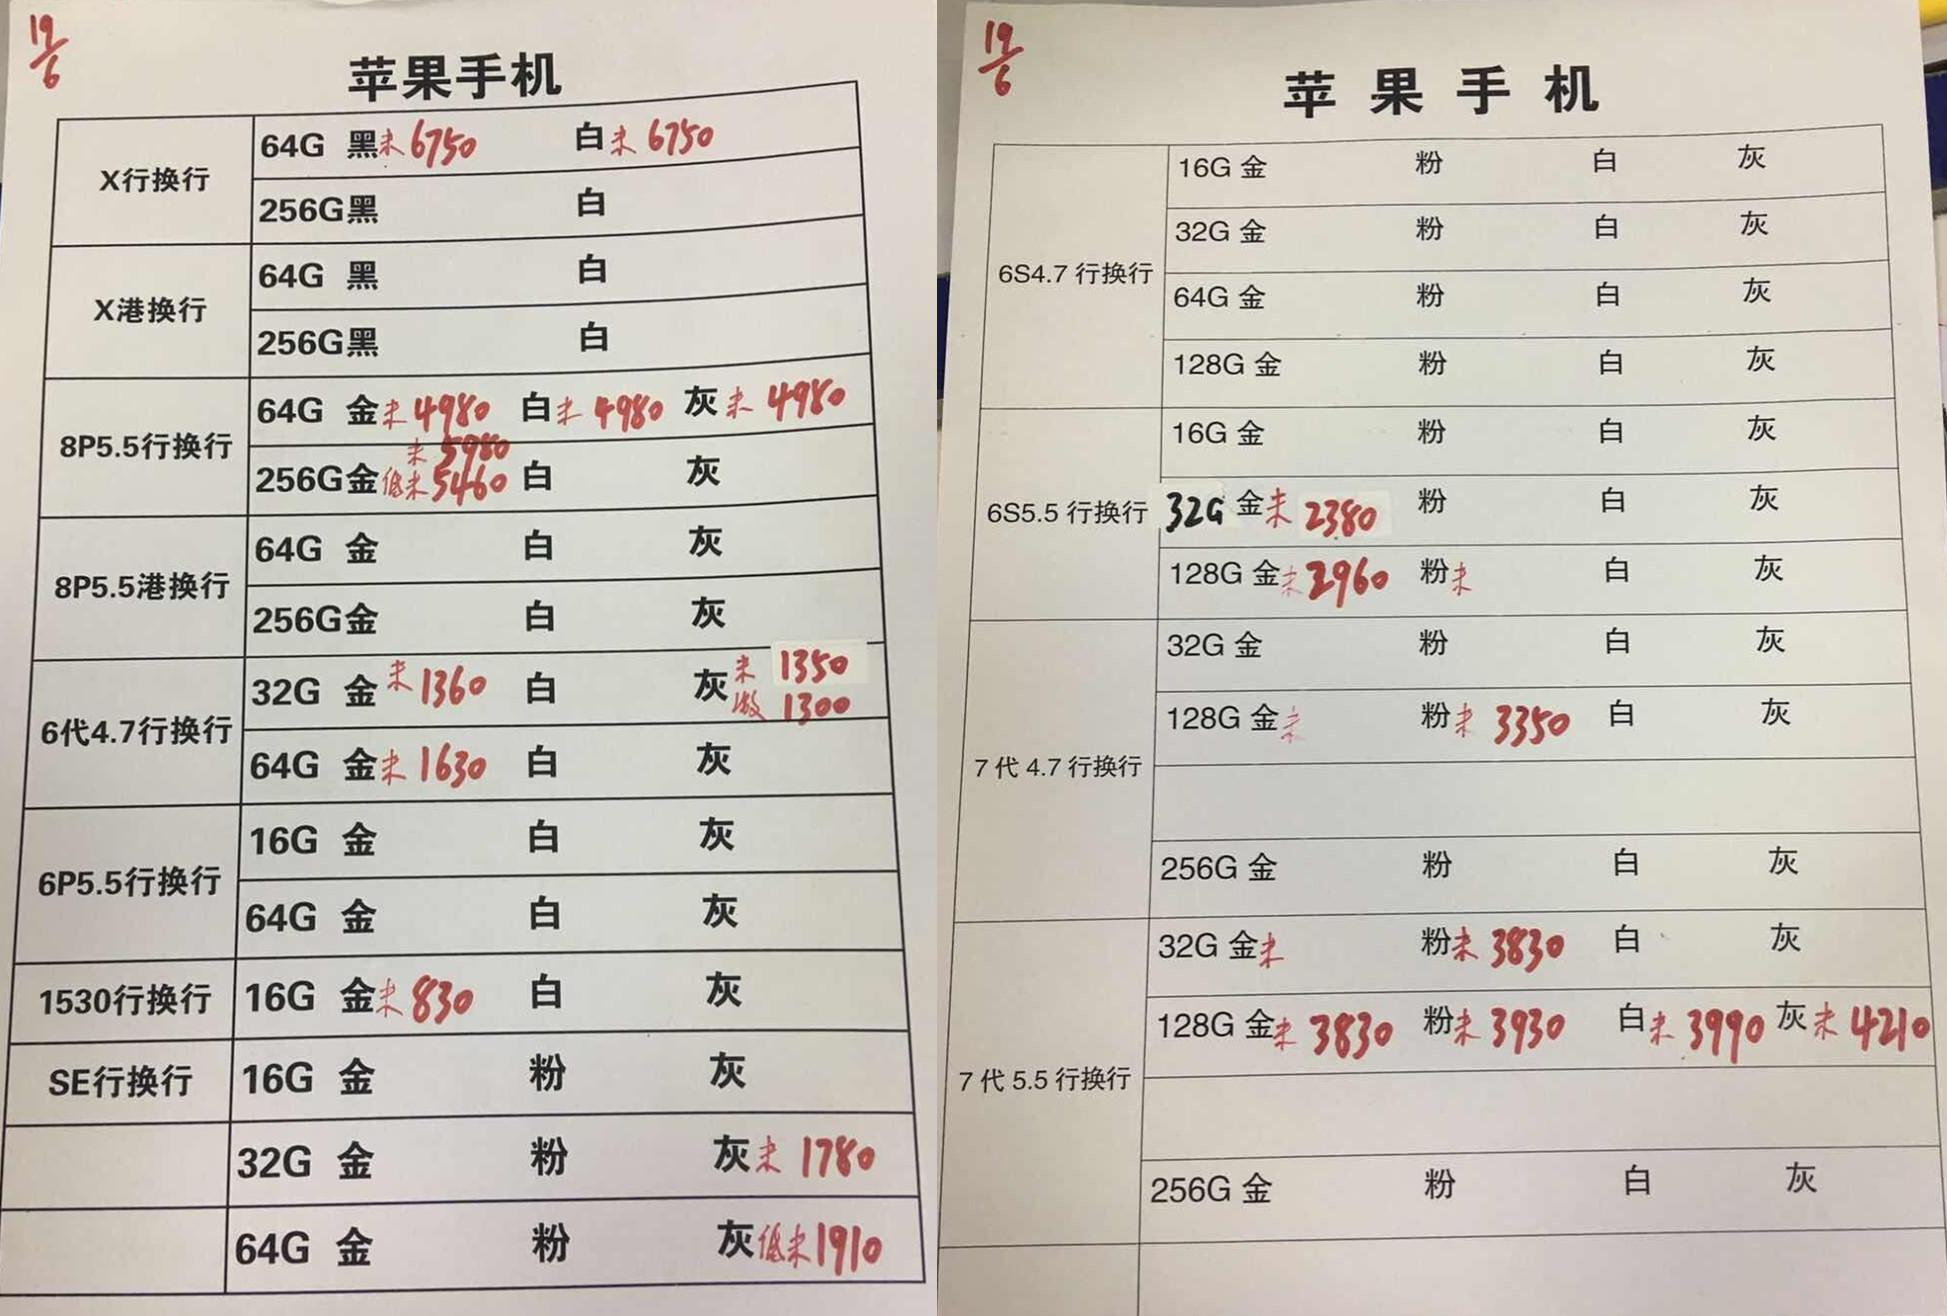 19/6
苹果手机
X行换行
64G 黑未6750 白未6750
256G黑 白
X港换行
64G 黑 白
256G黑 白
8P5.5行换行
64G 金未4980 白未4980 灰未4980
未5980
256G金低未5460 白 灰
8P5.5港换行
64G 金 白 灰
256G金 白 灰
6代4.7行换行
32G 金未1360 白 灰未1350
激1300
64G 金未1630 白 灰
6P5.5行换行
16G 金 白 灰
64G 金 白 灰
1530行换行
16G 金未830 白 灰
SE行换行
16G 金 粉 灰
32G 金 粉 灰未1780
64G 金 粉 灰低未1910
19/6
苹果手机
6S4.7行换行
16G 金 粉 白 灰
32G 金 粉 白 灰
64G 金 粉 白 灰
128G 金 粉 白 灰
6S5.5行换行
16G 金 粉 白 灰
32G 金未2380 粉 白 灰
128G 金未2960 粉未 白 灰
7代4.7行换行
32G 金 粉 白 灰
128G 金未 粉未3350 白 灰
256G 金 粉 白 灰
7代5.5行换行
32G 金未 粉未3830 白 灰
128G 金未3830 粉未3930 白未3990 灰未4210
256G 金 粉 白 灰